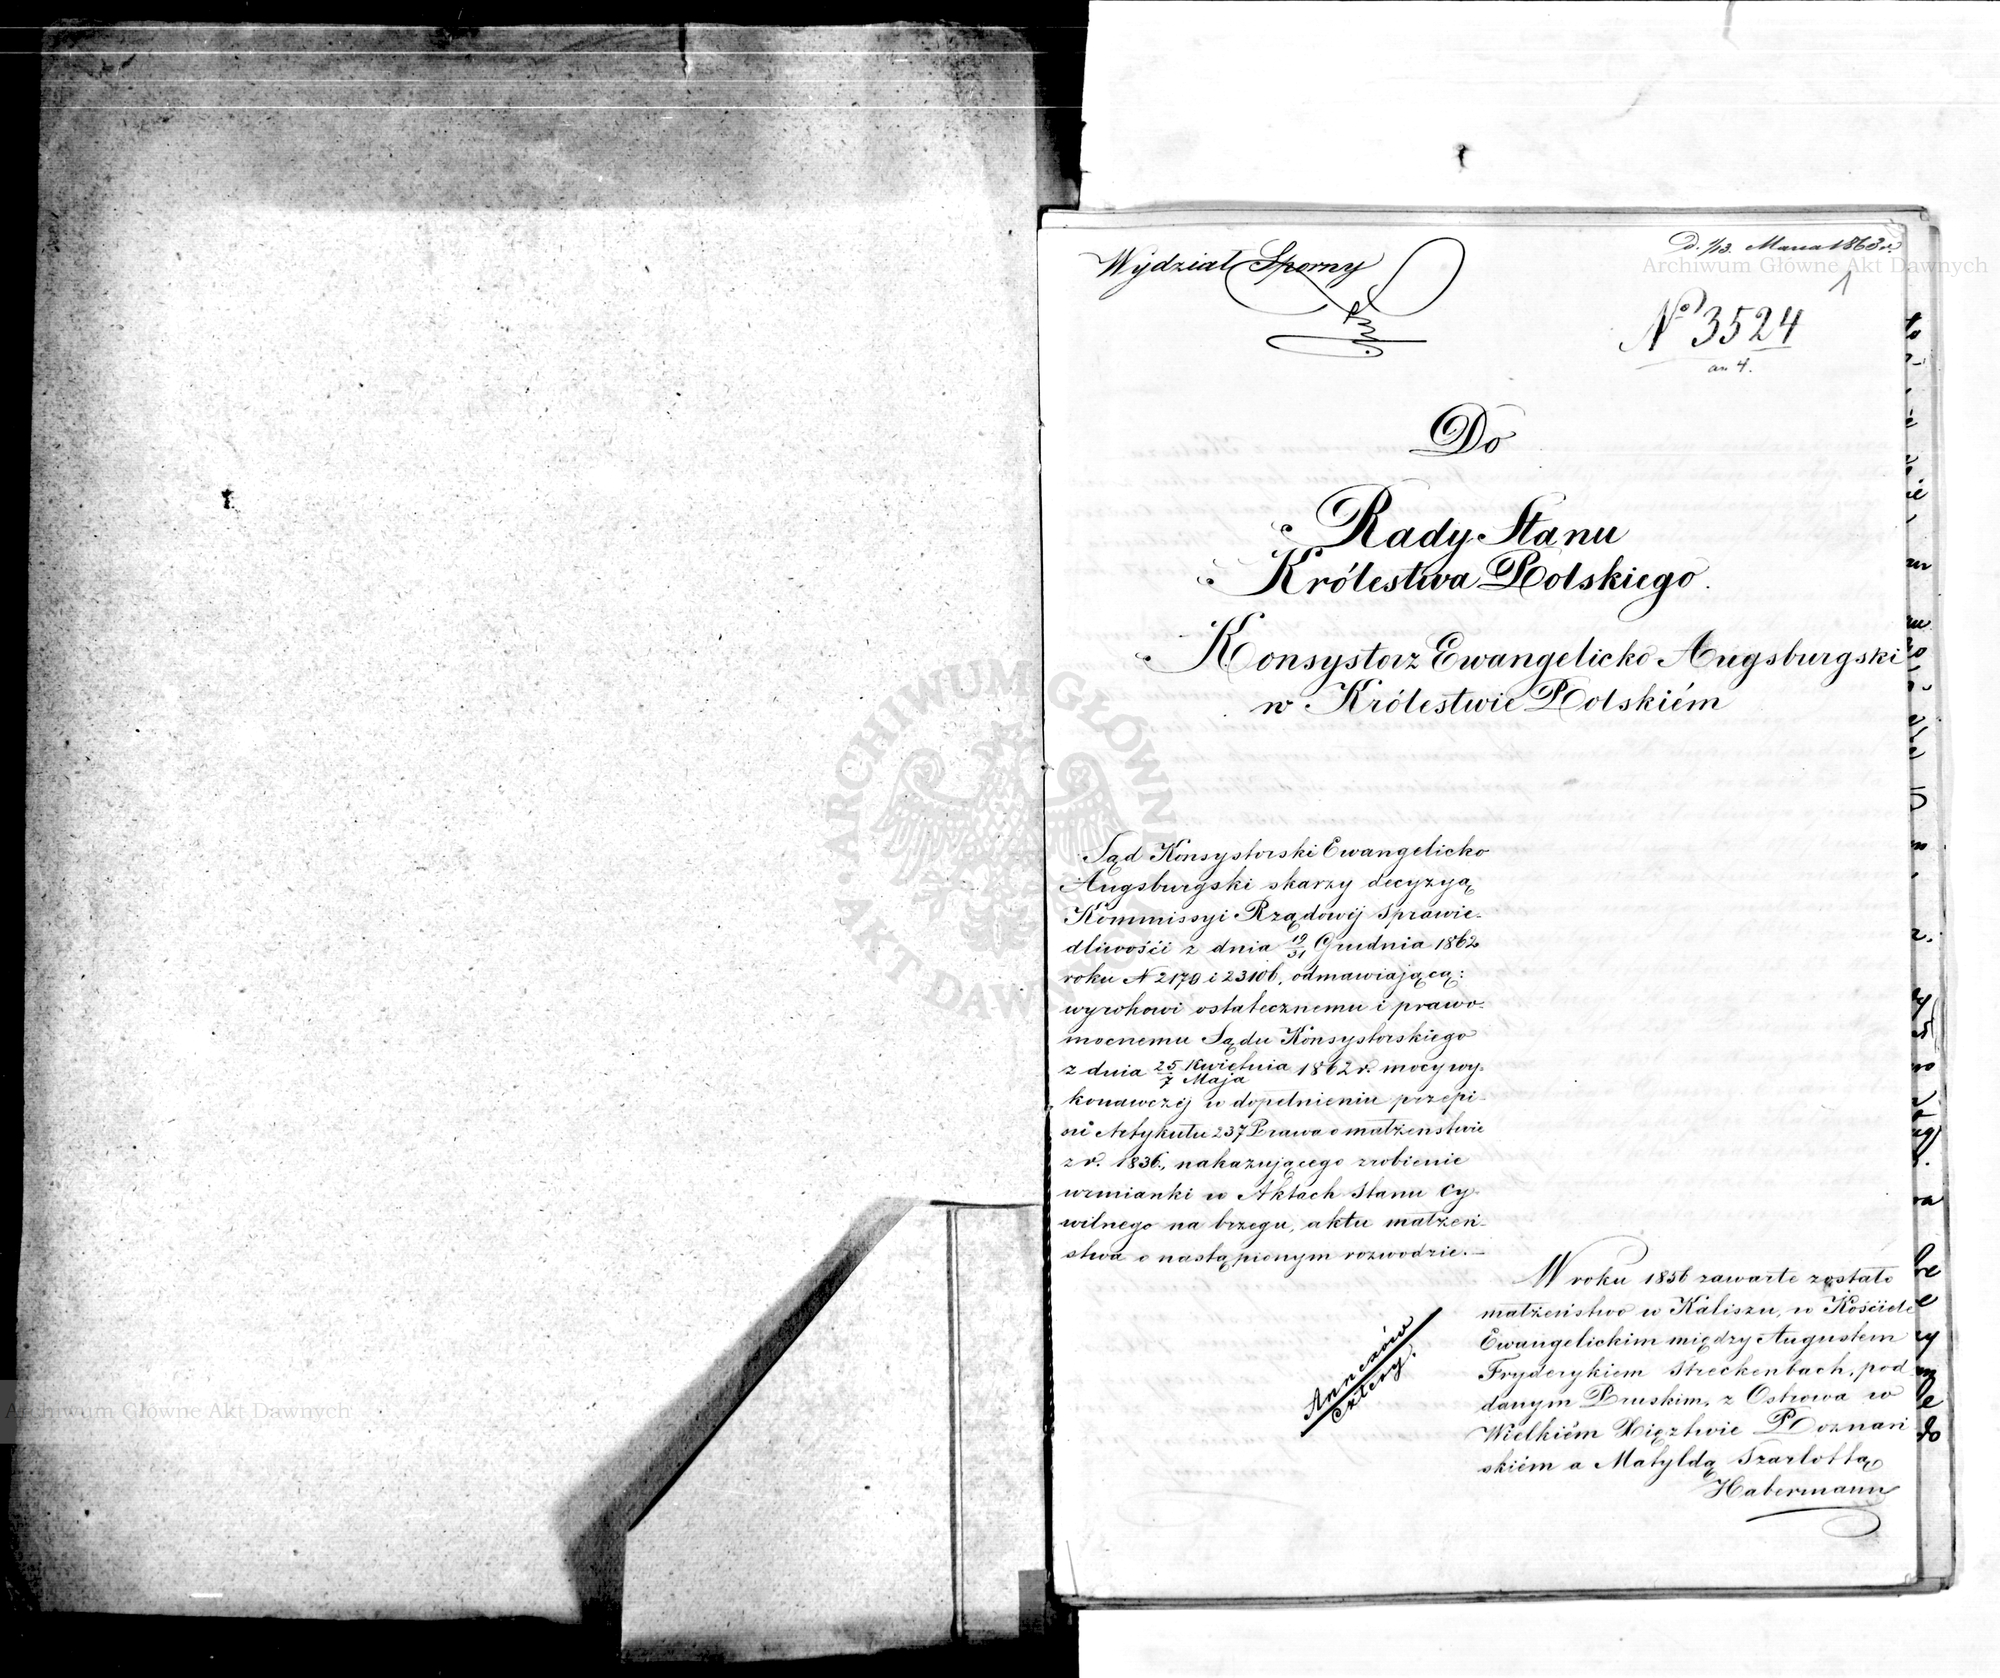 Wydział Sporny
D. 1/13. Marca 1863 r.
Archiwum Główne Akt Dawnych
1
No 3524
an 4.
Do
Rady Stanu
Królestwa Polskiego.
Konsystorz Ewangelicko Augsburgski
w Królestwie Polskiém
Sąd Konsystorski Ewangelicko
Augsburgski skarzy decyzyą
Kommissyi Rządowéj Sprawie-
dliwości z dnia 19/31 Grudnia 1862
roku N 2170 i 23106, odmawiającą:
wyrokowi ostatecznemu i prawo-
mocnemu Sądu Konsystorskiego
z dnia 25 Kwietnia/7 Maja 1862 r. mocy wy-
konawczéj w dopełnieniu przepi-
su Artykułu 237 Prawa o małżeństwie
z r. 1836, nakazującego zrobienie
wzmianki w Aktach Stanu Cy-
wilnego na brzegu, aktu małżeń-
stwa o nastąpionym rozwodzie.—
Annexów
cztery.
W roku 1856 zawarte zostało
małżeństwo w Kaliszu, w Kościele
Ewangelickim między Augustem
Fryderykiem Streckenbach, pod
danym Pruskim, z Ostrowa w
Wielkiém Xięztwie Poznań
skiém a Matyldą Szarlottą
Habermann
ARCHIWUM GŁÓWNE AKT DAWNYCH
Archiwum Główne Akt Dawnych